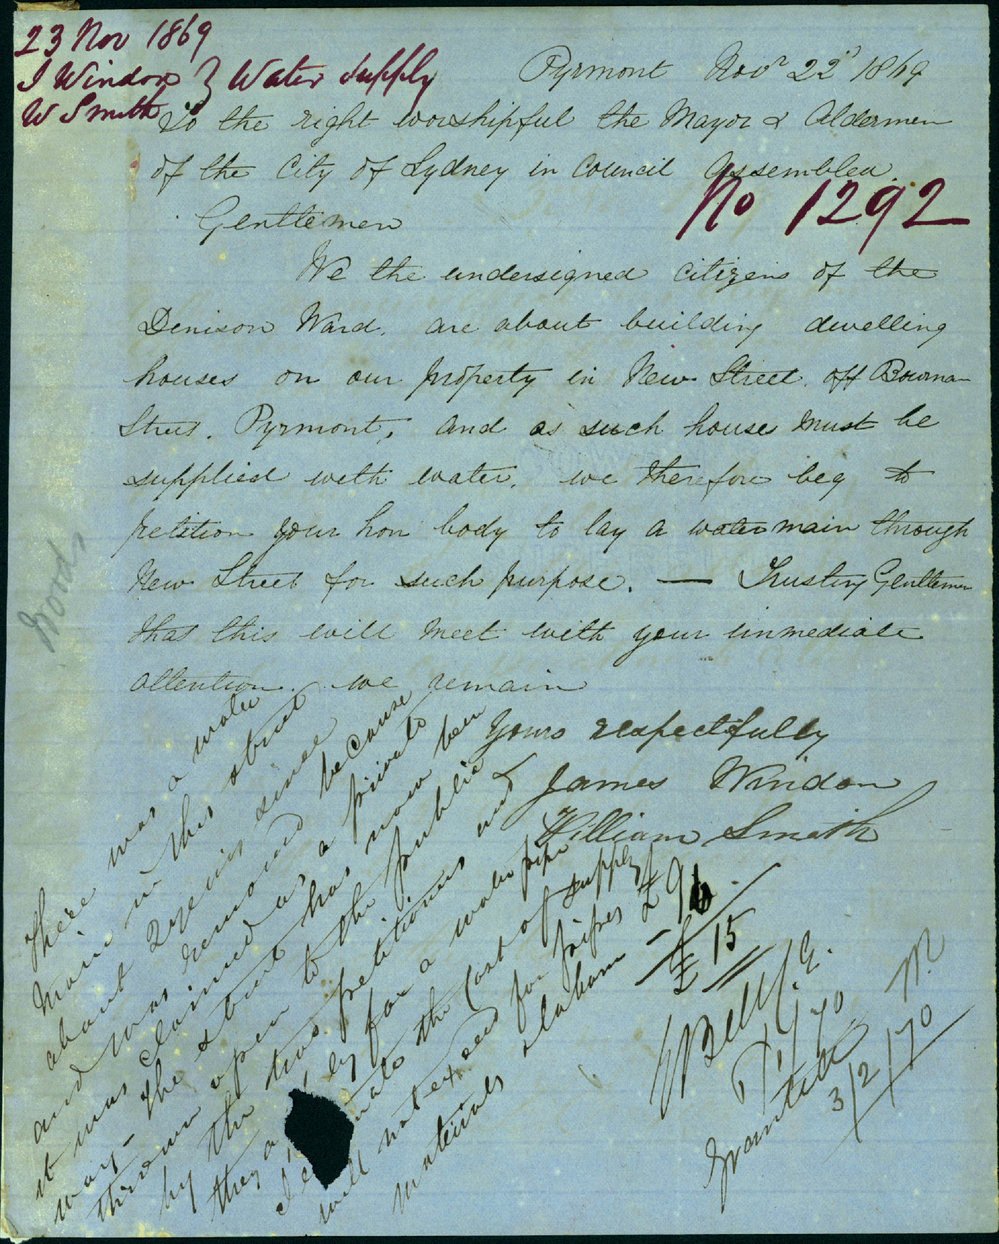 23 Nov 1869
J Windon } Water Supply
W Smith
Pyrmont Novr 22d 1869
To the right worshipful the Mayor & Aldermen
of the City of Sydney in Council Assembled.
No 1292
Gentlemen
We the undersigned citizens of the
Denison Ward, are about building dwelling
houses on our property in New Street off Bowman
Street, Pyrmont, and as such house must be
supplied with water, we therefore beg to
petition your hon body to lay a water main through
New Street for such purpose. — Trusting Gentlemen
that this will meet with your immediate
attention. we remain
Yours respectfully
James Windon
William Smith
Woods
There was a water
Main in this street
about 2 years since
and was removed because
it was claimed as a private
way - the street has now been
thrown open to the public
by the two petitioners and
they for a water pipe
I the Cost of supply
will not exceed for pipes £96.
materials & labour £15
W Bell C.E.
7/1/70
Granted
3/2/70